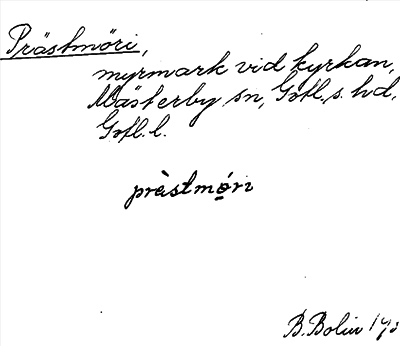 Prästmöri,
myrmark vid kyrkan,
Mästerby sn, Gotl. s. hd.
Gotl. l.
prästmöri
B. Bolin